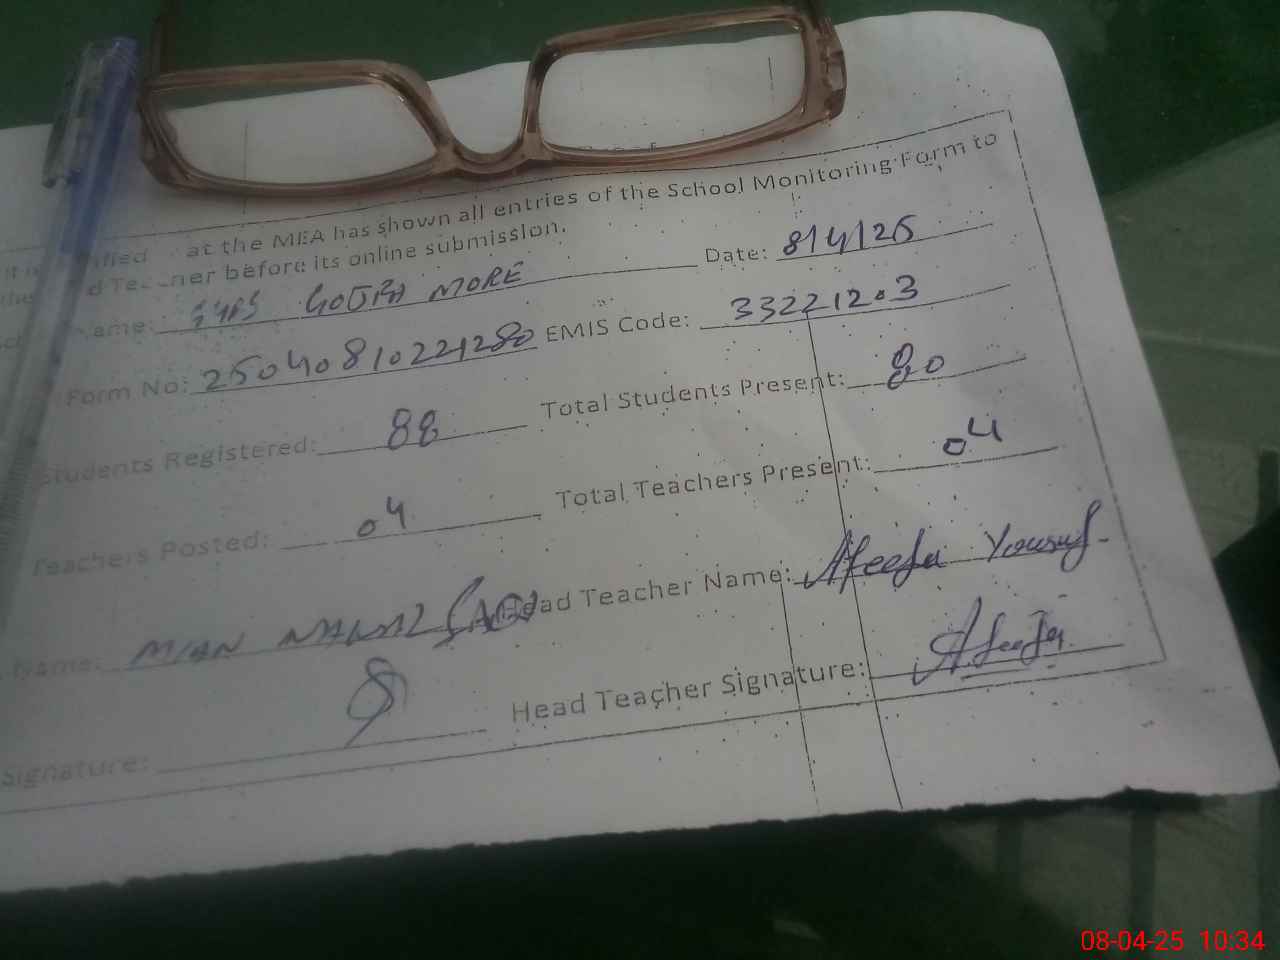 at the MEA has shown all entries of the School Monitoring Form to
before its online submission.
Name: GGPS GOJRA MORE Date: 8/4/25
Form No: 250408102221280 EMIS Code: 33221203
Students Registered: 88 Total Students Present: 80
Teachers Posted: 04 Total Teachers Present: 04
Name: MIAN Head Teacher Name: Afeefa Yousuf
Signature: Head Teacher Signature: Afeefa
08-04-25 10:34